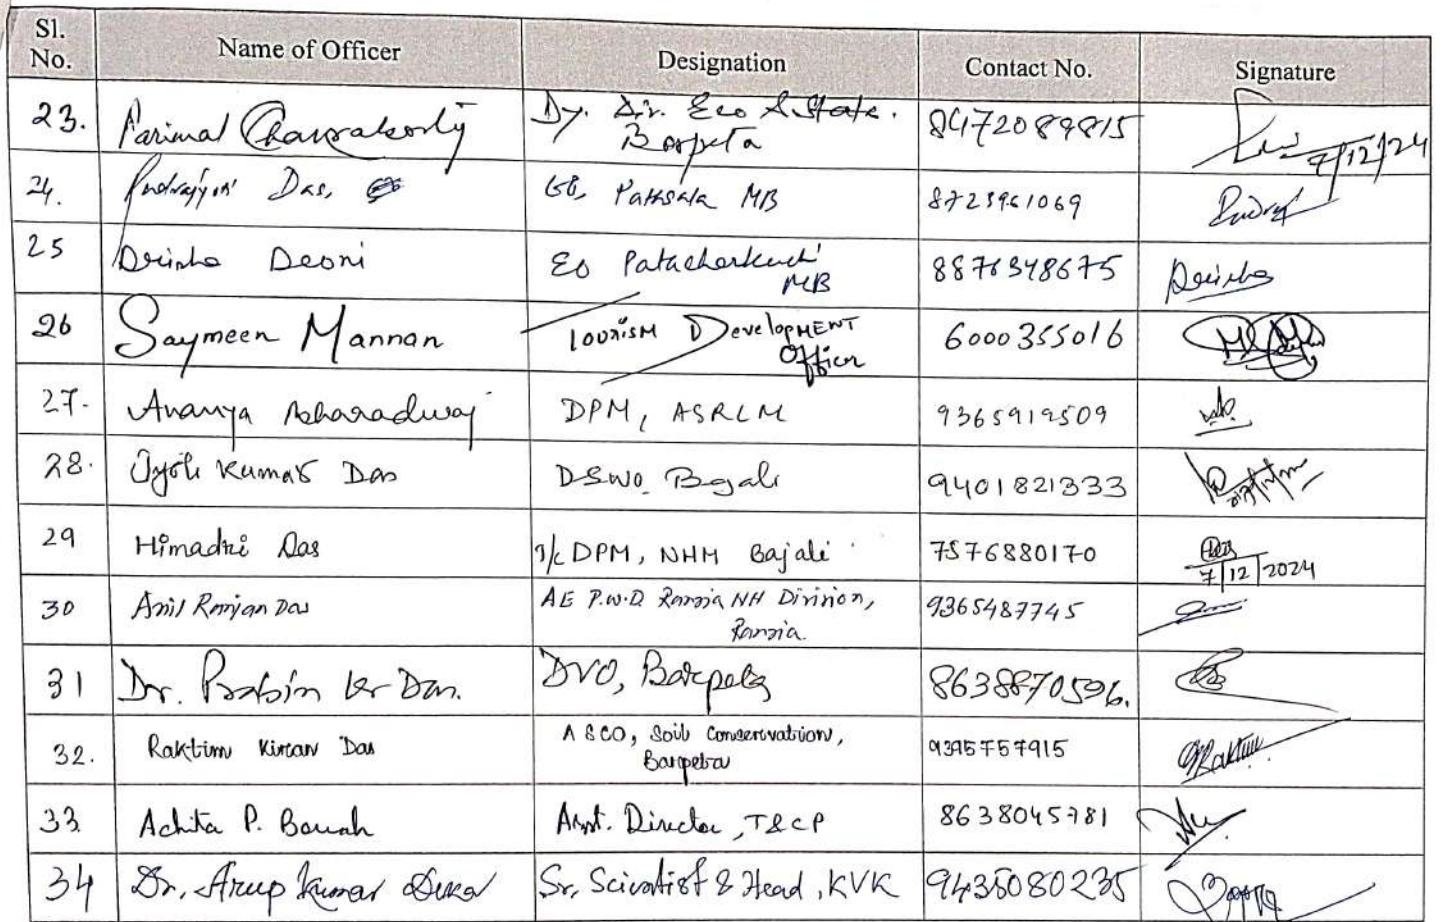 Sl. No. Name of Officer Designation Contact No. Signature
23. Parimal Chakraborty Dy. Dir. Eco & State. 8472089815
Barpeta 7/12/24
24. Das, Pathsala MB 8723961069
25 Deoni EO Patacharkuchi 8876348675
MB
26 Saymeen Mannan Tourism Development 6000355016
Officer
27. Ananya Bharadwaj DPM, ASRLM 9365919509
28. Jyoti Kumar Das DSWO, Bajali 9401821333
29 Himadri Das I/c DPM, NHM Bajali 7576880170
7/12/2024
30 Anil Ranjan Das AE P.W.D Rangia NH Division, 9365487745
Rangia.
31 Dr. Prabin Kr Das. DVO, Barpeta 8638870596.
32. Raktim Kiran Das ASCO, Soil Conservation, 9395757915
Barpeta
33 Achita P. Baruah Asst. Director, T&CP 8638045781
34 Dr. Arup Kumar Deka Sr. Scientist & Head, KVK 9435080235